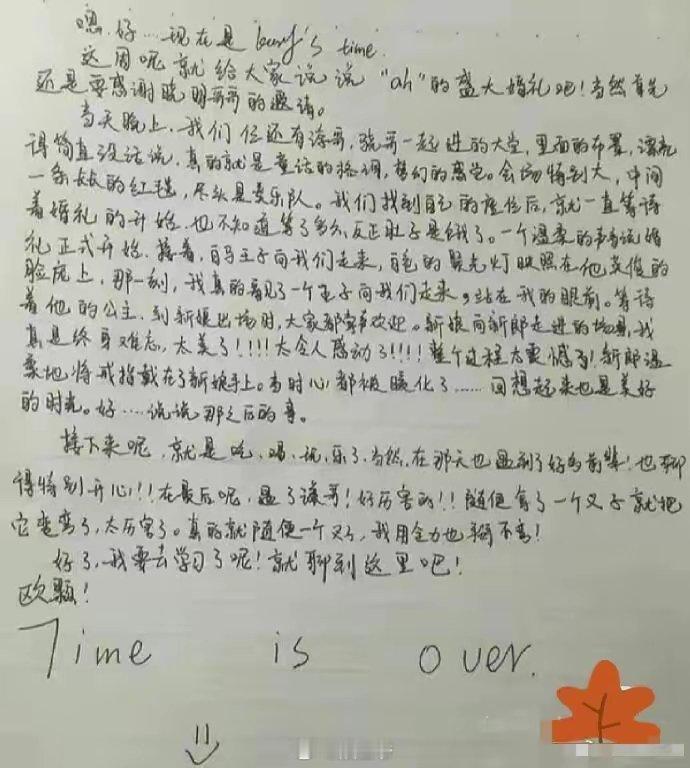 嗯.好…..现在是 karry's time.
这周呢就给大家说说 "ah"的盛大婚礼吧!当然首先
还是要感谢晓明哥哥的邀请。
当天晚上.我们仨还有涛哥,骁哥一起进的大堂,里面的布置,漂亮
得简直没话说,真的就是童话的格调,梦幻的感觉。会场特别大,中间
一条长长的红毯,尽头是交乐队。我们找到自己的座位后,就一直等待
着婚礼的开始.也不知道等了多久,反正肚子是饿了。一个温柔的声音说婚
礼正式开始.接着,白马王子向我们走来,白色的聚光灯映照在他英俊的
脸庞上,那一刻,我真的看见了一个王子向我们走来,站在我的眼前。等待
着他的公主.到新娘出场时,大家都掌声欢迎。新娘向新郎走进的场景,我
真是终身难忘,太美了!!!!太令人感动了!!!!整个过程太震憾了!新郎温
柔地将戒指戴在了新娘手上。当时心都被暖化了……回想起来也是美好
的时光。好….说说那之后的事。
接下来呢,就是吃.喝.玩.乐了.当然,在那天也遇到了好多前辈!也聊
得特别开心!!在最后呢,遇了谦哥!好厉害的!!随便拿了一个叉子就把
它变弯了,太厉害了。真的就随便一个叉子,我用全力也掰不弯!
好了,我要去学习了呢!就聊到这里吧!
欧颗!
Time is over.